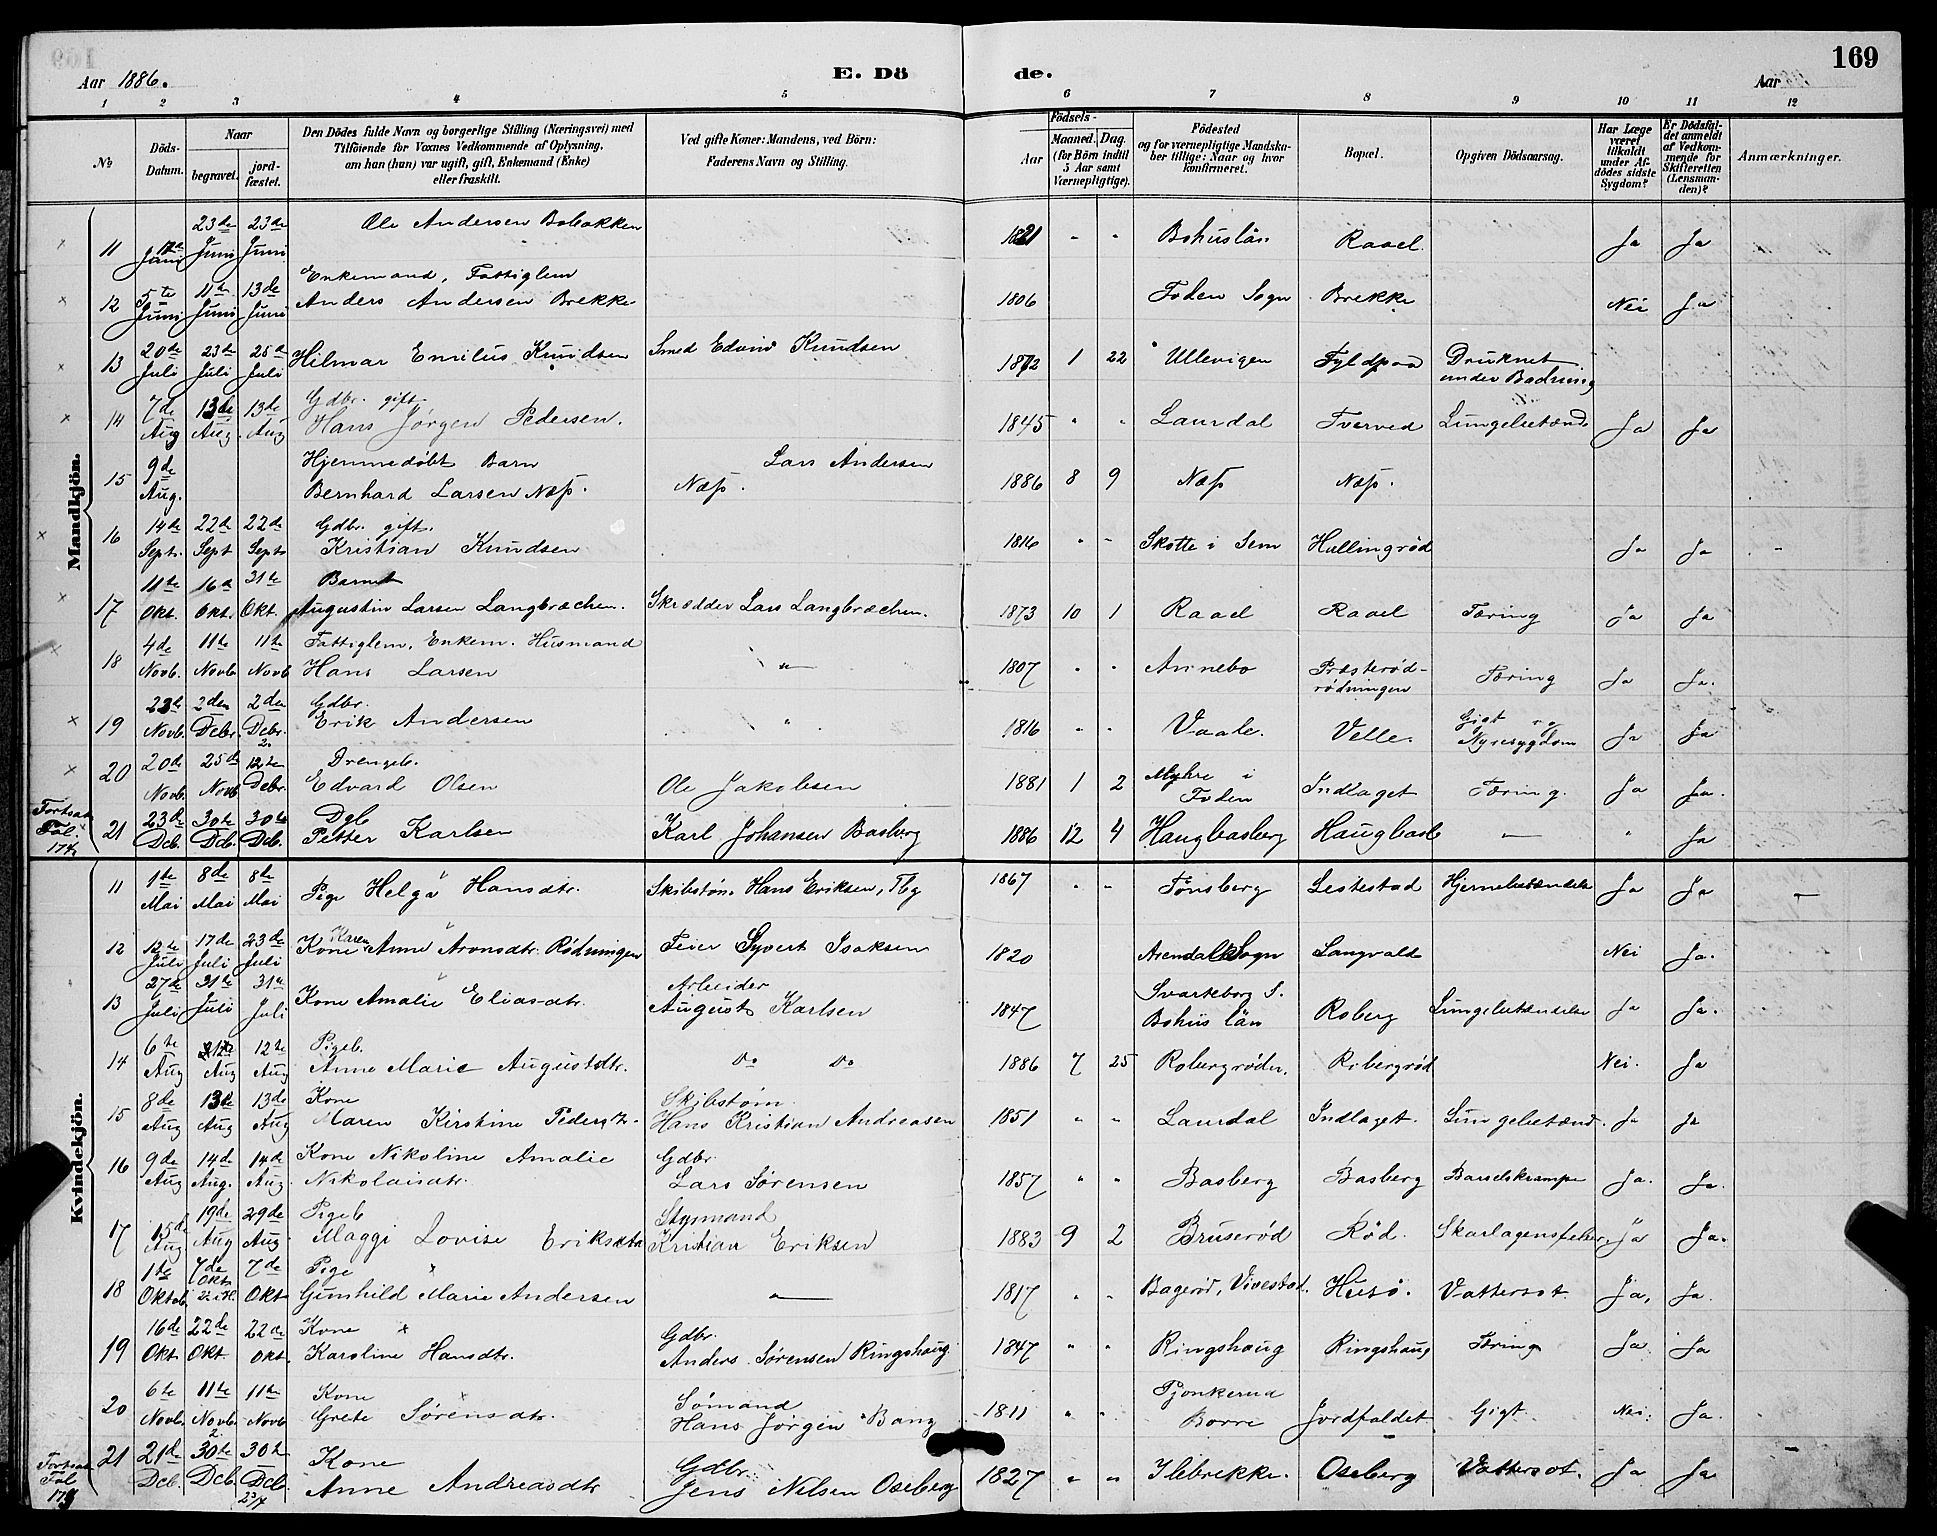 169
Aar 1886.
E. Dö
de.
Aar
1 2 3 4 5 6 7 8 9 10 11 12
No
Döds-Datum.
Naar
begravet.
jord-fæstet.
Den Dödes fulde Navn og borgerlige Stilling (Næringsvei) med
Tilföiende for Voxnes Vedkommende af Oplysning,
om han (hun) var ugift, gift, Enkemand (Enke)
eller fraskilt.
Ved gifte Koner: Mandens, ved Börn:
Faderens Navn og Stilling.
Födsels-
Aar
Maaned. Dag.
(for Börn indtil
5 Aar samt
Værnepligtige).
Födested
og for værnepligtige Mandska-
ber tillige: Naar og hvor
konfirmeret.
Bopæl.
Opgiven Dödsaarsag.
Har Læge
været
tilkaldt
under Af-
dödes sidste
Sygdom?
Er Dödsfal-
det anmeldt
af Vedkom-
mende for
Skifteretten
(Lensman-
den)?
Anmærkninger.
Mandkjön.
11 17de Juni 23de Juni 23de Juni Ole Andersen Bobakken 1821 " " Bohuslän Raael. Ja Ja
Enkemand, Fattiglem
12 5te Juni 11te Juni 13de Juni Anders Andersen Brekke 1806 Foden Sogn Brekke Nei Ja
13 20de Juli 23de Juli 25de Juli Hilmar Emilus Knudsen Smed Edvin Knudsen 1872 1 22 Ullevigen Fyldpaa Druknet under Badning
14 7de Aug 13de Aug. 13de Aug Gdbr. gift Hans Jørgen Pedersen. 1845 " " Laurdal Tverved Lungebetænd Ja Ja
15 9de Aug. Hjemmedøbt Barn Bernhard Larsen Næss. Lars Andersen Næss. 1886 8 9 Næss Næss.
16 14de Sept. 22de Sept 22de Sept Gdbr. gift. Kristian Knudsen 1816 " " Skotte i Sem Hullingrød Ja Ja "
17 11te Okt. 16de Okt. 31te Okt. Barnet Augustin Larsen Langbræchen. Skrædder Lars Langbræchen. 1873 10 1 Raael Raael Tæring Ja Ja
18 4de Novb. 11te Novb. 11te Novb Fattiglem, Enkem. Husmand Hans Larsen " 1807 " " Annebo Præsterød-rødningen Tæring Ja Ja.
19 23de Novb. 2den Debr. 2den Debr. Gdbr. Erik Andersen " 1816 " " Vaale. Velle. Gigt og Nyresygdom Ja Ja
20 20de Novb. 25de Novb 12te Debr. Drengeb. Edvard Olsen Ole Jakobsen 1881 1 2 Myhre i Foden Indlaget Tæring. Ja Ja.
Fortsat Fol. 174
21 23de Dcb. 30te Dcb. 30te Dcb. Dgb Petter Karlsen Karl Johansen Basberg 1886 12 4 Haugbasberg Haugbasb — " Ja
Kvindekjön.
11 1te Mai 8de Mai 8de Mai Pige Helga Hansdtr. Skibstøm. Hans Eriksen, Tbg 1867 " " Tønsberg Lestestad Hjernebetændelse Ja Ja —
12 12te Juli 17de Juli 23de Juli Kone Karen Anne Aronsdtr. Rødningen Feier Syvert Isaksen 1820 Arendals Sogn Langvald Nei Ja.
13 27de Juli 31te Juli 31te Juli Kone Amalie Eliasdtr. Arbeider August Karlsen 1847 Svarteborg S. Bohus län Roberg Lungebetændelse Ja Ja.
14 6te Aug 12te Aug 12te Aug Pigeb. Anne Marie Augustdtr. Do Do 1886 7 25 Robergrøden. Robergrød Nei. Ja
15 8de Aug 13de Aug 13de Aug Kone Maren Kirstine Pedersdtr. Skibstøm. Hans Kristian Andreasen 1851 " " Laurdal Indlaget. Lungebetænd. Ja Ja
16 9de Aug 14de Aug. 14de Aug. Kone Nikoline Amalie Nikolaisdtr. Gdbr. Lars Sørensen 1857 " " Basberg Basberg Barselskrampe Ja. Ja.
17 15de Aug 19de Aug 29de Aug Pigeb Maggi Lovise Eriksdtr Styrmand Kristian Eriksen 1883 9 2 Bruserød Rød. Skarlagensfeber. Ja Ja.
18 1te Oktob. 7de Okt 7de Okt Pige Gunhild Marie Andersen " — 1817 " " Bagerød, Vivestad. Husø. Vattersot. Ja, Ja.
19 16de Okt 22de Okt. 22de Okt. Kone Karoline Hansdtr. Gdbr. Anders Sørensen Ringshaug 1847 " " Ringshaug Ringshaug Tæring Ja Ja
20 6te Novb. 11te Novb. 11te Novb Kone Grete Sørensdtr. Sømand Hans Jørgen Bang 1811 " " Borre Jordfaldet Gigt. Nei. Ja.
Fortsat Fol
21 21de Dcb. 30te Dcb. 30te Dcb. Kone Anne Andreasdtr Gdbr. Jens Nilsen Oseberg 1827 " " Ilebrekke. Oseberg Vattersot. Ja Ja